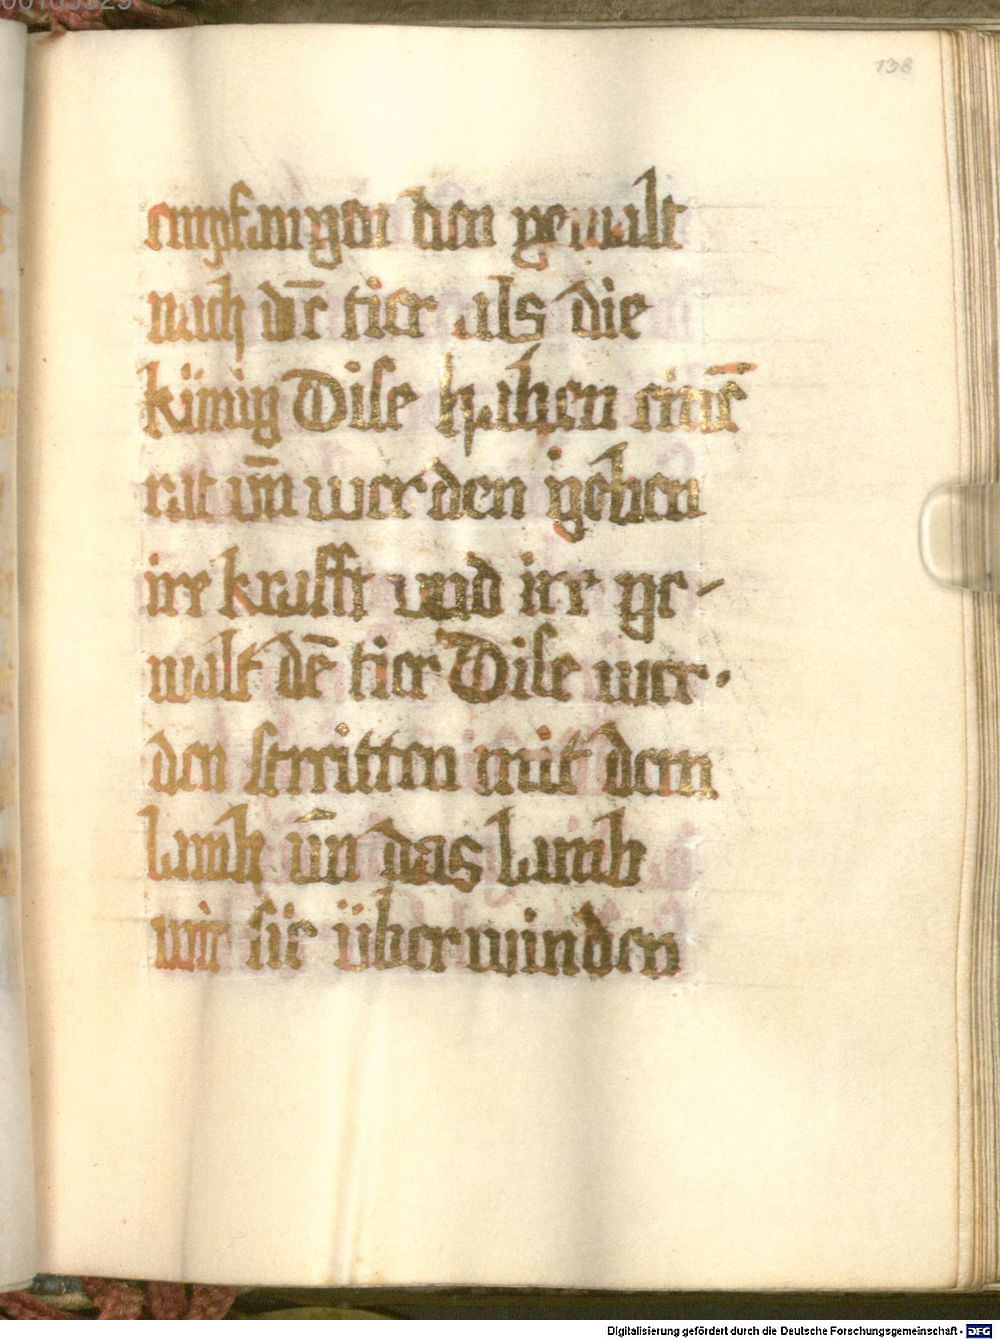 138
empfangen den gewalt
nach dē tier als die
künig Dise haben einē
rat vn̄ werden geben
ire krafft und ire ge-
walt dē tier Dise wer-
den streitten mit dem
Lamb vn̄ das Lamb
wir sie überwinden
Digitalisierung gefördert durch die Deutsche Forschungsgemeinschaft - DFG